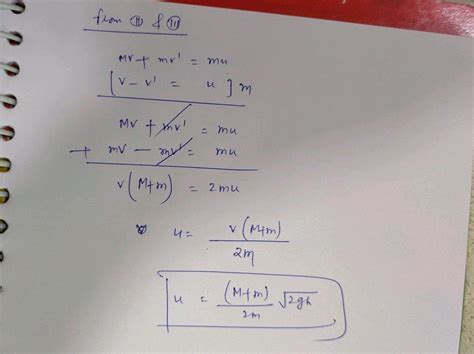 from (II) & (III)
MV + mv' = mu
[V - v' = u] m
MV + mv' = mu
+ mV - mv' = mu
V(M+m) = 2mu
u = V(M+m) / 2m
u = (M+m) / 2m √2gh